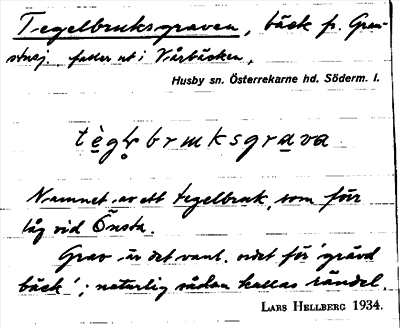 Tegelbruksgraven, bäck fr. Gran-
stusj. faller ut i Vårbäcken,
Husby sn. Österrekarne hd. Söderm. l.
tègl̥bruksgrava
Namnet av ett tegelbruk, som förr
låg vid Önsta.
Grav är det vanl. ordet för 'grävd
bäck'; naturlig sådan kallas rändel.
LARS HELLBERG 1934.